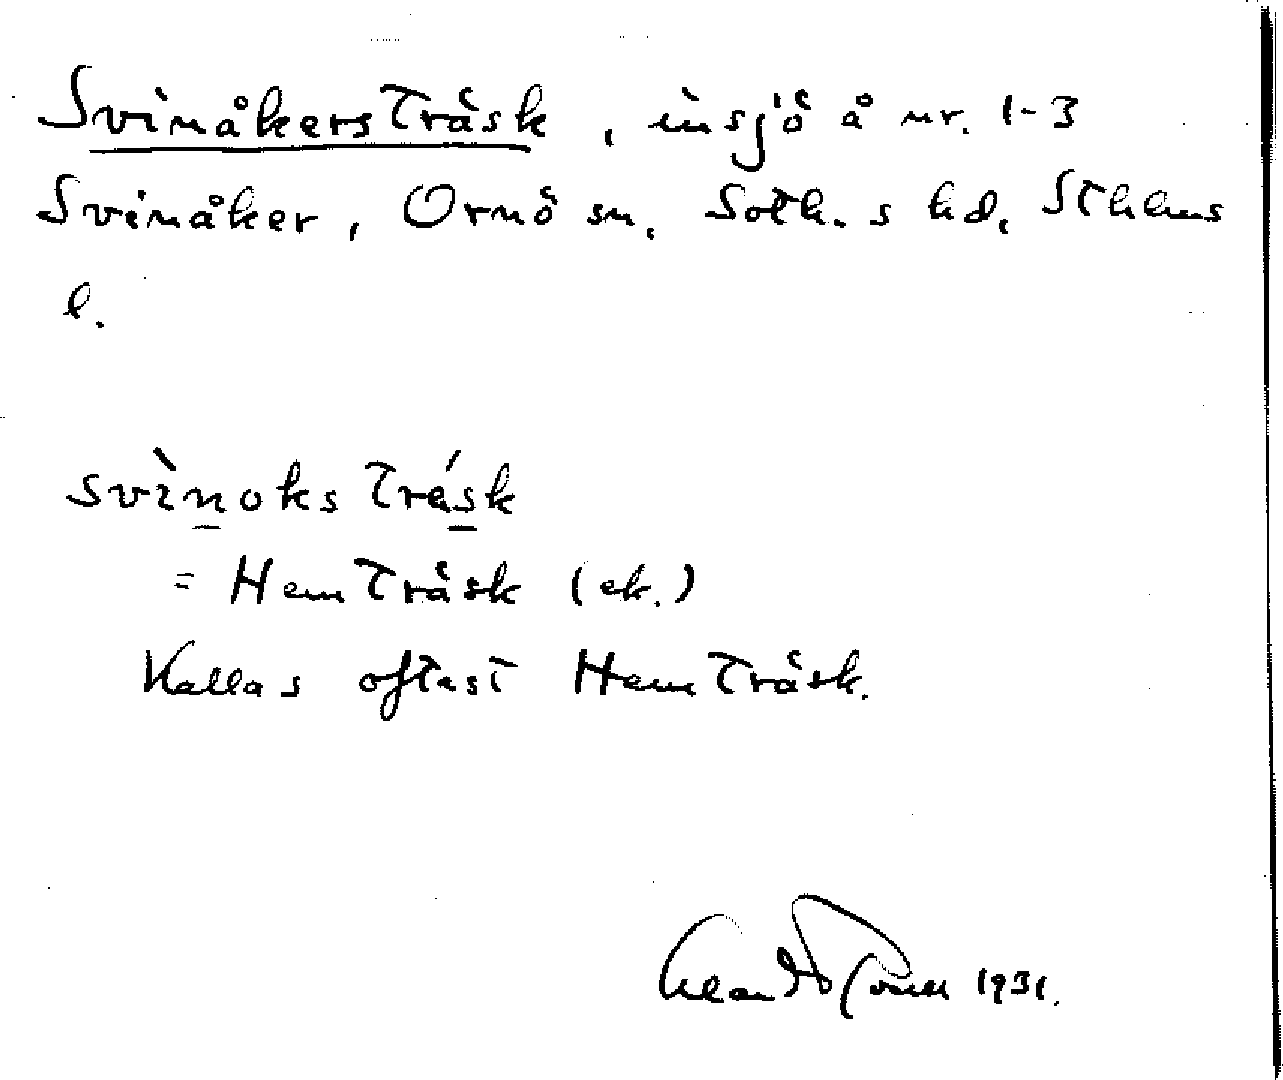 Svinåkers träsk, insjö å nr. 1-3
Svinåker, Ornö sn, Soth.s hd, Sthlms
l.
svìnoks trásk
= Hemträsk (ek.)
Kallas oftast Hemträsk.
1931.